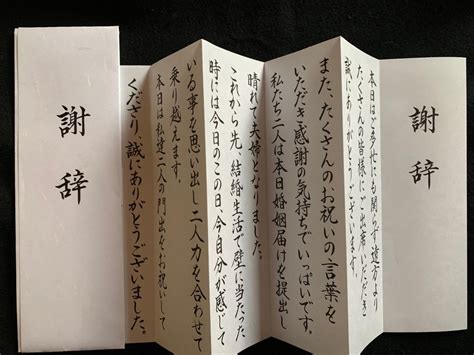 謝辞
本日はご多忙にも関らず遠方より
たくさんの皆様にご出席いただき
誠にありがとうございます。
また、たくさんのお祝いの言葉を
いただき感謝の気持ちでいっぱいです。
私たち二人は本日婚姻届けを提出し
晴れて夫婦となりました。
これから先、結婚生活で壁に当たった
時には今日のこの日今自分が感じて
いる事を思い出し二人力を合わせて
乗り越えます。
本日は私達二人の門出をお祝いして
くださり、誠にありがとうございました。
謝辞